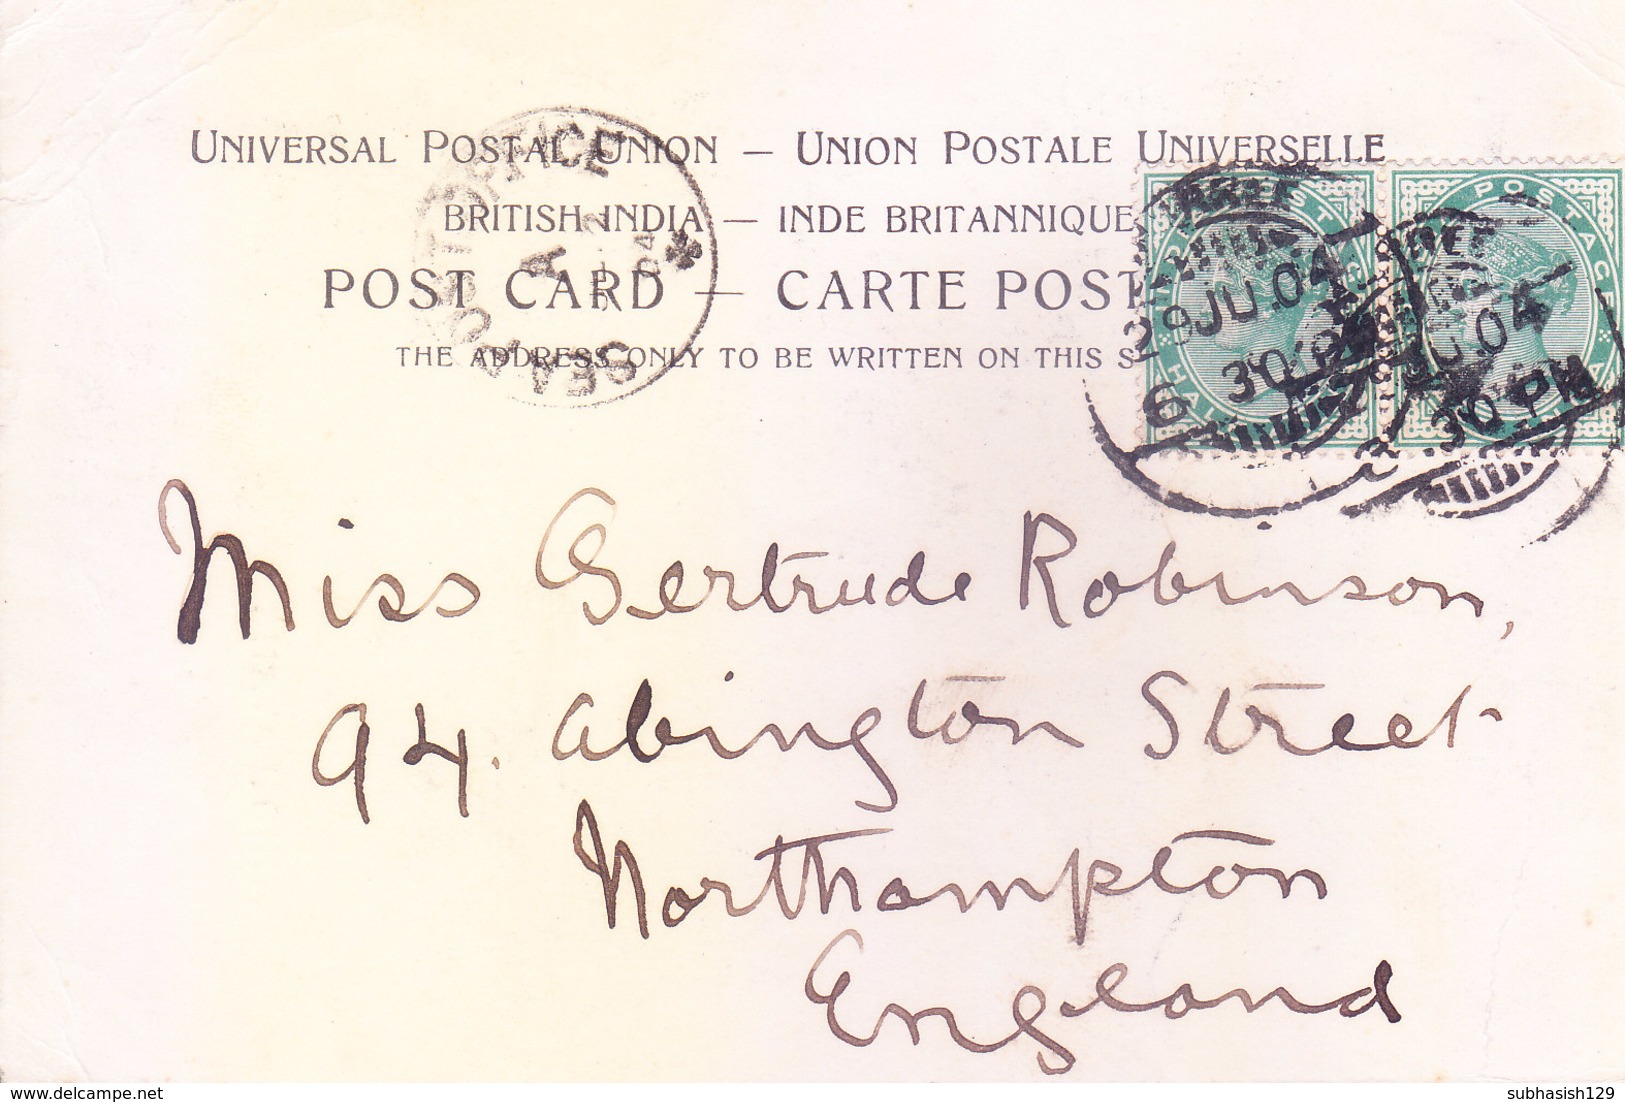 UNIVERSAL POSTAL UNION — UNION POSTALE UNIVERSELLE
BRITISH INDIA — INDE BRITANNIQUE
POST CARD — CARTE POST
THE ADDRESS ONLY TO BE WRITTEN ON THIS S
SEA POST OFFICE
A
04
POSTAGE
HAL
29 JU.04
6 30 P
JU.04
30 PM
Miss Gertrude Robinson,
94. Abington Street
Northampton
England
subhasish129